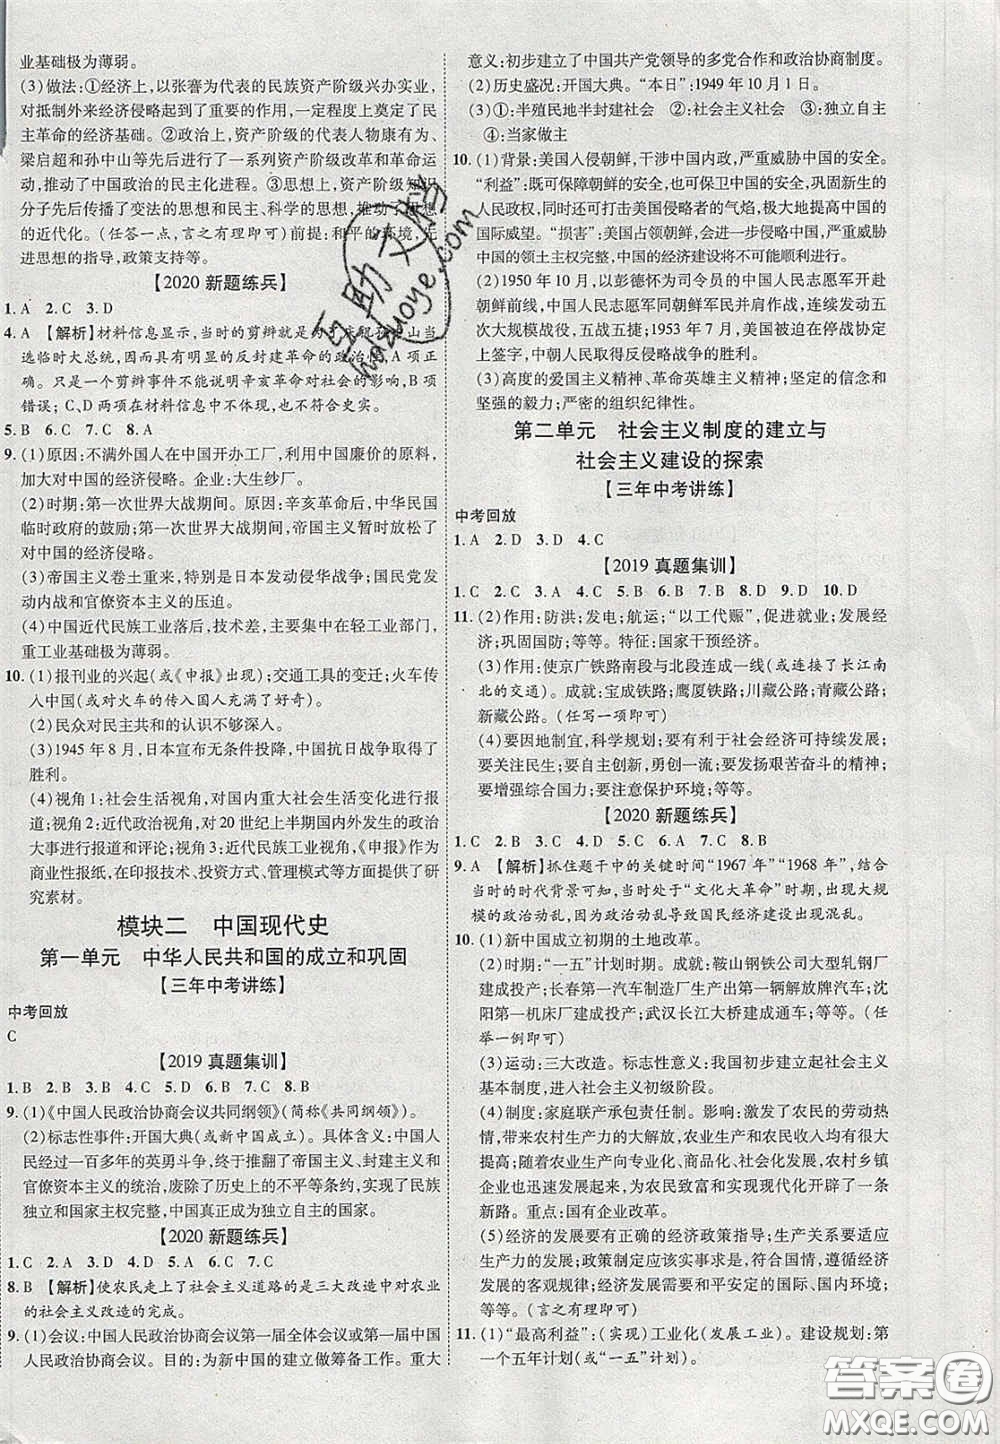 业基础极为薄弱。
(3)做法:①经济上,以张謇为代表的民族资产阶级兴办实业,
对抵制外来经济侵略起到了重要的作用,一定程度上奠定了民
主革命的经济基础。②政治上,资产阶级的代表人物康有为、
梁启超和孙中山等先后进行了一系列资产阶级改革和革命运
动,推动了中国政治的民主化进程。③思想上,资产阶级知识
分子先后传播了变法的思想和民主、科学的思想,推动了思想
的近代化。(任答一点,言之有理即可)前提:和平的环境,先
进的思想指导,政策支持等。
【2020 新题练兵】
1. A  2. C  3. D
4. A 【解析】材料信息显示,当时的剪辫就是为了庆祝孙中山当
选临时大总统,因而具有明显的反封建革命的时代特征,A 项正
确。只是一个剪辫事件不能说明辛亥革命对社会的影响,B 项
错误;C、D 两项在材料中体现不出来,也不符合史实。
5. B  6. C  7. C  8. A
9. (1)原因:不满外国人在中国开办工厂,利用中国廉价的原料,
加大对中国的经济侵略。企业:大生纱厂。
(2)时期:第一次世界大战期间。原因:辛亥革命后,中华民国
临时政府的鼓励;第一次世界大战期间,帝国主义暂时放松了
对中国的经济侵略。
(3)帝国主义卷土重来,特别是日本发动侵华战争;国民党发
动内战和官僚资本主义的压迫。
(4)中国近代民族工业落后,技术差,主要集中在轻工业部门,
重工业基础极为薄弱。
10. (1)报刊业的兴起(或《申报》出现);交通工具的变迁;火车传
入中国(或对火车的传入国人充满了好奇)。
(2)民众对民主共和的认识不够深人。
(3)1945 年 8 月,日本宣布无条件投降,中国抗日战争取得了
胜利。
(4)视角 1:社会生活视角,对国内重大社会生活变化进行报
道;视角 2:近代政治视角,对 20 世纪上半期国内外发生的政治
大事进行报道和评论;视角 3:近代民族工业视角,《申报》作为
商业性报纸,在印报技术、投资方式、管理模式等方面提供了研
究素材。
模块二 中国现代史
第一单元 中华人民共和国的成立和巩固
【三年中考讲练】
中考回放
C
【2019 真题集训】
1. B  2. B  3. B  4. A  5. D  6. B  7. C  8. B
9. (1)《中国人民政治协商会议共同纲领》(简称《共同纲领》)。
(2)标志性事件:开国大典(或新中国成立)。具体含义:中国人
民经过一百多年的英勇斗争,终于推翻了帝国主义、封建主义和
官僚资本主义的统治,废除了历史上的不平等条约,实现了民族
独立和国家主权完整,中国真正成为独立自主的国家。
【2020 新题练兵】
1. C  2. A  3. D  4. D  5. D  6. C  7. C
8. B 【解析】使农民走上了社会主义道路的是三大改造中对农业
的社会主义改造的完成。
9. (1)会议:中国人民政治协商会议第一届全体会议或第一届中国
人民政治协商会议。目的:为新中国的建立做筹备工作。重大
意义:初步建立了中国共产党领导的多党合作和政治协商制度。
(2)历史盛况:开国大典。“本日”:1949 年 10 月 1 日。
(3)①半殖民地半封建社会 ②社会主义社会 ③独立自主
④当家做主
10. (1)背景:美国人侵朝鲜,干涉中国内政,严重威胁中国的安全。
“利益”:既可保障朝鲜的安全,也可保卫中国的安全,巩固新生的
人民政权,同时可打击美国侵略者的气焰,极大地提高中国的
国际威望。“损害”:美国占领朝鲜,将严重威胁中国的安全,中
国的领土主权完整将受到危害,中国的经济建设将不可能进行。
(2)1950 年 10 月,以彭德怀为司令员的中国人民志愿军开赴
朝鲜前线,中国人民志愿军同朝鲜军民并肩作战,连续发动五
次大规模战役,五战五捷;1953 年 7 月,美国被迫在停战协定
上签字,中朝人民取得反侵略战争的胜利。
(3)高度的爱国主义精神、革命英雄主义精神;坚定的信念和
坚强的毅力;严密的组织纪律性。
第二单元 社会主义制度的建立与
社会主义建设的探索
【三年中考讲练】
中考回放
1. A  2. D  3. D  4. C
【2019 真题集训】
1. C  2. C  3. B  4. B  5. A  6. C  7. C  8. D  9. D  10. D
11. (2)作用:防洪;发电;航运;“以工代赈”,促进就业;发展经
济;巩固国防;等等。特征:国家干预经济。
(3)作用:使京广铁路南段与北段连成一线(或连接了长江南
北的交通)。成就:宝成铁路;鹰厦铁路;川藏公路;青藏公路;
新藏公路。(任写一项即可)
(4)要因地制宜,科学规划;要有利于社会经济可持续发展;
要关注民生;要自主创新,勇创一流;要发扬艰苦奋斗的精神;
要增强综合国力;要注意保护环境;等等。
【2020 新题练兵】
1. C  2. C  3. B  4. D  5. C  6. A  7. C  8. B
9. A 【解析】抓住题干中的关键时间“1967 年”“1968 年”,结合
当时的时代背景可知,当时处于“文化大革命”时期,出现大规
模的政治动乱,因为政治动乱导致国民经济发展出现混乱。
10. (1)新中国成立初期的土地改革。
(2)时期:“一五”计划时期。成就:鞍山钢铁公司大型轧钢厂
建成投产;长春第一汽车制造厂生产出第一辆解放牌汽车;沈
阳第一机床厂建成投产;武汉长江大桥建成通车;等等。(任
举一例即可)
(3)运动:三大改造。标志性意义:我国初步建立起社会主义
基本制度,进入社会主义初级阶段。
(4)制度:家庭联产承包责任制。影响:激发了农民的劳动热
情,带来农村生产力的大解放,农业生产和农民收入均有很大
提高;随着农业生产向专业化、商品化、社会化发展,农村乡镇
企业迅速发展,也为农民致富和实现现代化开辟了一条新
路。重点:国有企业改革。
(5)经济的发展要有正确的经济政策指导;生产关系要适应
生产力的发展;政策制定应该实事求是,符合国情,遵循经济
发展的客观规律;经济发展需要和平安定的国际、国内环境;
等等。(言之有理即可)
11. (1)“最高利益”:(实现)工业化(发展工业)。建设规划:第
一个五年计划(或“一五”计划)。
互助文档
hdzuoye.com
答案圈
MXQE.COM